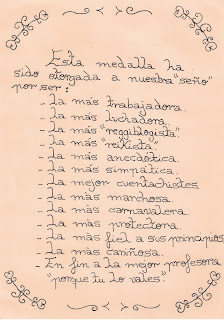 Esta medalla ha
sido otorgada a nuestra "seño"
por ser:
- La más trabajadora.
- La más luchadora.
- La más "reggiblogista"
- La más "reikista".
- La más anecdótica.
- La más simpática.
- La mejor cuentachistes.
- La más marchosa.
- La más carnavalera.
- La más protectora.
- La más fiel a sus principios
- La más cariñosa.
- En fin a la mejor profesora
"porque tu lo vales".